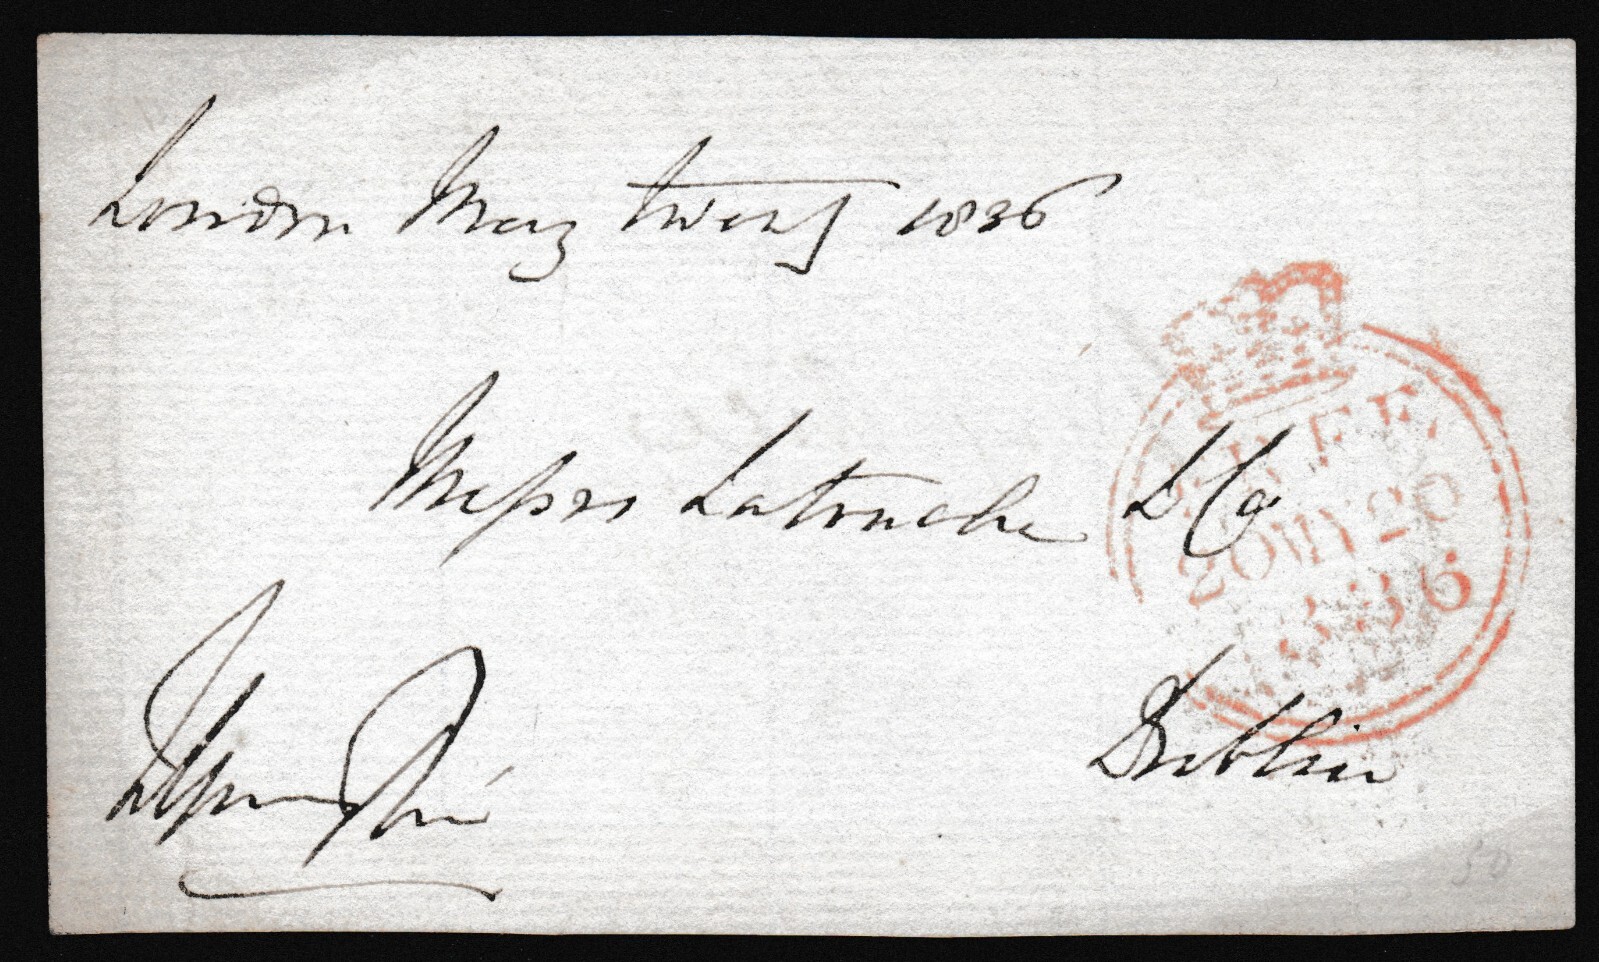 London May twenty 1836
Messrs Latouche & Co
Dublin
FREE
20 MY 20
1836
50